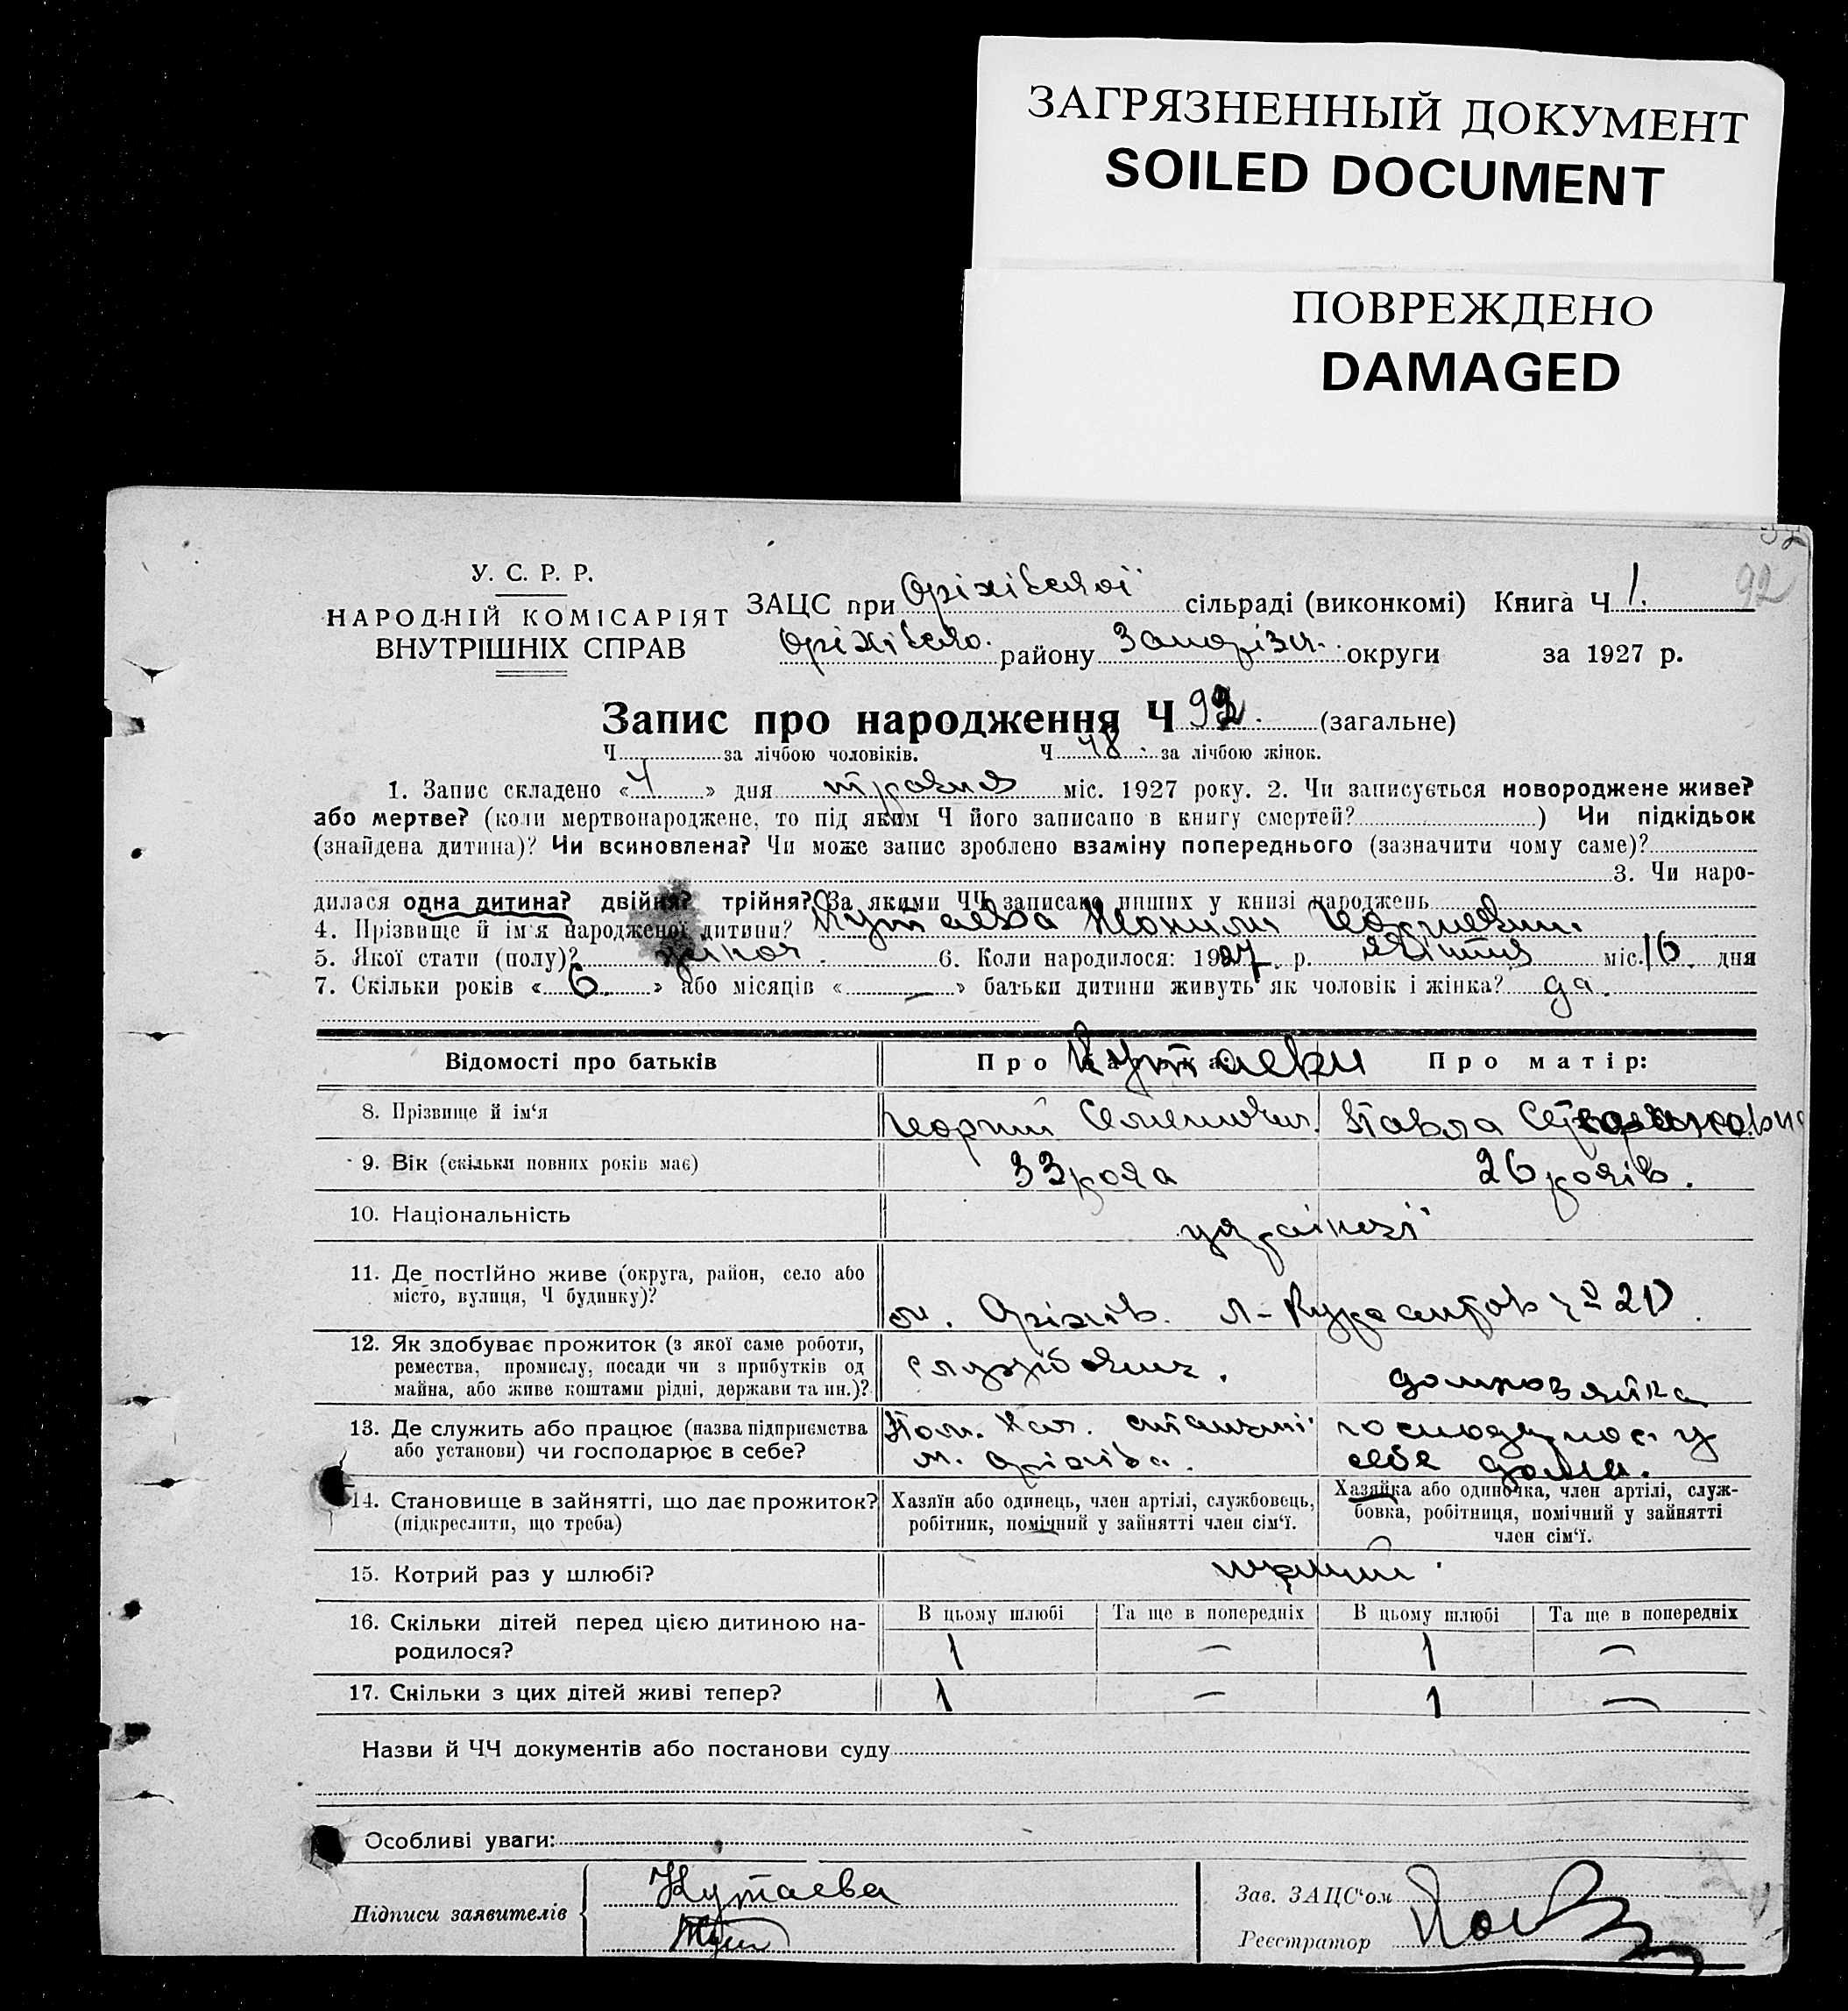 ЗАГРЯЗНЕННЫЙ ДОКУМЕНТ
SOILED DOCUMENT
ПОВРЕЖДЕНО
DAMAGED
92
У. С. Р. Р.
НАРОДНІЙ КОМІСАРІЯТ
ВНУТРІШНІХ СПРАВ
ЗАЦС при Оріхівської сільраді (виконкомі) Книга Ч 1.
Оріхівсько. району Запоріз. округи за 1927 р.
Запис про народження Ч 92. (загальне)
Ч за лічбою чоловіків. Ч 48 за лічбою жінок.
1. Запис складено «4» дня травня міс. 1927 року. 2. Чи записується новороджене живе?
або мертве? (коли мертвонароджене, то під яким Ч його записано в книгу смертей? ) Чи підкідьок
(знайдена дитина)? Чи всиновлена? Чи може запис зроблено взаміну попереднього (зазначити чому саме)?
3. Чи наро-
дилася одна дитина? двійня? трійня? За якими ЧЧ записано инших у книзі народжень
4. Прізвище й ім'я народженої дитини? Кутаева
5. Якої стати (полу)? жіноч. 6. Коли народилося: 1927 р. квітня міс. 16 дня
7. Скільки років «6» або місяців «—» батьки дитини живуть як чоловік і жінка? да.
Відомості про батьків Про Кутаеви Про матір:
8. Прізвище й ім'я Георгий Семенович. Павла
9. Вік (скільки повних років має) 33 рока 26 років.
10. Національність українці
11. Де постійно живе (округа, район, село або
місто, вулиця, Ч будинку)? м. Оріхів. Курсантов 20
12. Як здобуває прожиток (з якої саме роботи,
ремества, промислу, посади чи з прибутків од
майна, або живе коштами рідні, держави та ин.)? службовець. домхозяйка
13. Де служить або працює (назва підприємства
або установи) чи господарює в себе? Пом. Нач. станції м. Оріхіва. господарює у себе дома.
14. Становище в зайнятті, що дає прожиток?
(підкреслити, що треба)
Хазяїн або одинець, член артілі, службовець,
робітник, помічний у зайнятті член сім'ї.
Хазяйка або одиночка, член артілі, служ-
бовка, робітниця, помічний у зайнятті
член сім'ї.
15. Котрий раз у шлюбі? перший
16. Скільки дітей перед цією дитиною на-
родилося?
В цьому шлюбі Та ще в попередніх В цьому шлюбі Та ще в попередніх
1 — 1 —
17. Скільки з цих дітей живі тепер? 1 — 1 —
Назви й ЧЧ документів або постанови суду
Особливі уваги:
Підписи заявителів Кутаева
Зав. ЗАЦС'ом
Реєстратор